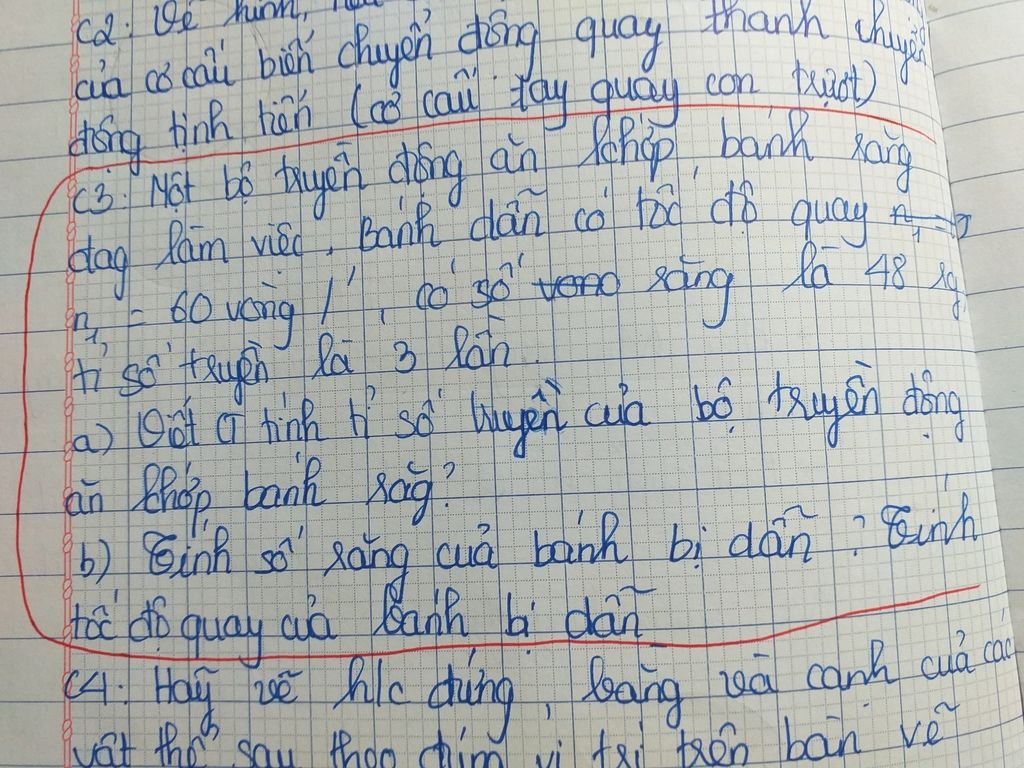 C2: Vẽ hình,
của cơ cấu biến chuyển động quay thanh chuyển
động tịnh tiến (cơ cấu tay quay con trượt)
C3: Một bộ truyền động ăn khớp bánh răng
đag làm việc, Bánh dẫn có tốc độ quay
n₁ = 60 vòng /', có số răng là 48 rg,
tỉ số truyền là 3 lần.
a) Viết CT tính tỉ số truyền của bộ truyền động
ăn khớp bánh răg?
b) Tính số răng của bánh bị dẫn? Tính
tốc độ quay của bánh bị dẫn
C4: Hãy vẽ h/c đứng, bằng và cạnh của các
vật thể sau theo đúng vị trí trên bản vẽ